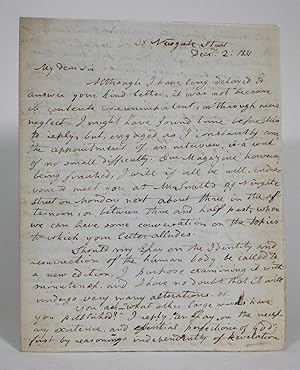 38 Newgate Street
Decr. 2. 1831
My dear Sir
Although I have long delayed to
answer your kind letter, it was not because
its contents were unimportant, or through mere
neglect. I might have found time before this
to reply, but, engaged as I constantly am
the appointment of an interview, is a work
of no small difficulty. Our Magazine however
being finished, I will if all be well, endea
vour to meet you at 38 Newgate
street on Monday next about three in the af
ternoon, or between three and half past, when
we can have some conversation on the topics
to which your letter alludes.
Should my Essay on the Identity and
resurrection of the human body be called to
a new edition, I purpose examining it with
minuteness, and I have no doubt that it will
undergo very many alterations.
You ask what other large works have
you published? I reply, "an Essay on the
existence, and perfections of God;
first by reasonings independently of Revelation